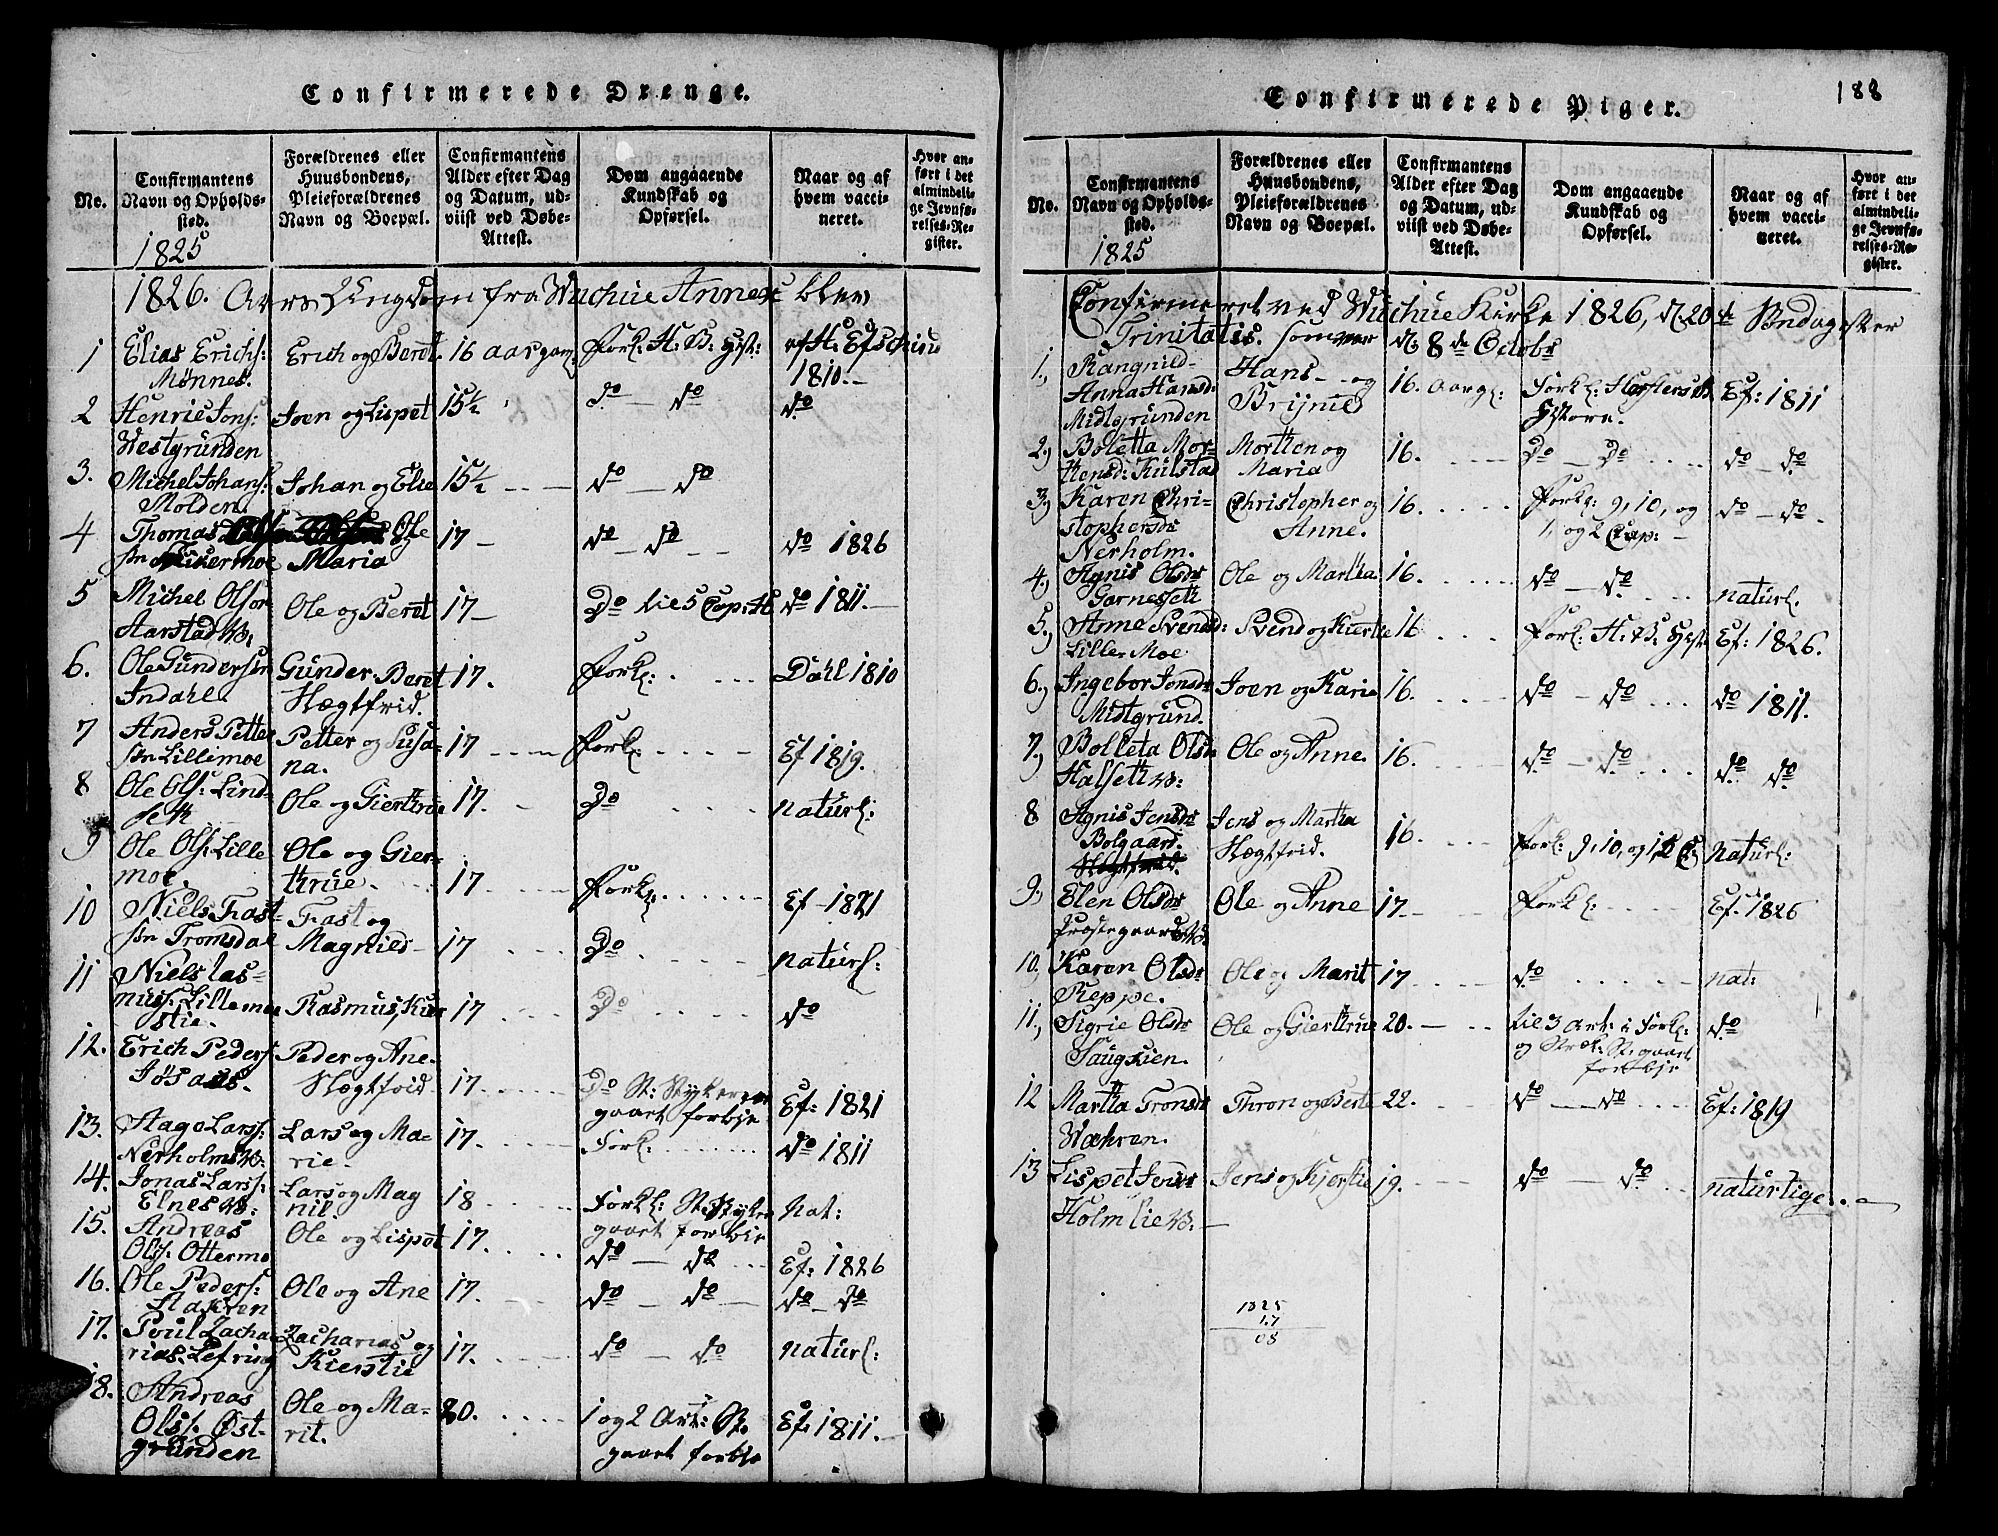 Confirmerede Drenge.
No.
Confirmantens Navn og Opholds-sted.
Forældrenes eller Huusbondens, Pleieforældrenes Navn og Boepæl.
Confirmantens Alder efter Dag og Datum, ud-viist ved Døbe-Attest.
Dom angaaende Kundskab og Opførsel.
Naar og af hvem vacci-neret.
Hvor an-ført i det almindeli-ge Jevnfø-relses-Re-gister.
1825
1826. Aars Ungdom fra Wuchue Annex blev
1 Elias Erichs: Mønnes. Erich og Beret. 16 aar gam: Forl: H: B: af H: 1810.
2 Henric Jons: Westgrunden Joen og Lispet 15½ do — do do
3. Michel Johans: Molden. Johan og Elie 15½ do — do
4 Thomas Ole og Maria 17 do — do do 1826
5 Michel Olson Aarstad W: Ole og Beret 17 Do 5 Cap: do 1811.
6. Ole Gundersen Indahl Gunder Beret Ægtfrid. 17. Forl: Dahl 1810
7 Anders Petter sn Lillemoe Petter og Susa-na. 17 Forl: Ef 1819.
8 Ole Ols: Lind seth Ole og Gierthrue 17. Do naturl:
9 Ole Ols: Lille moe Ole og Gier-thrue. 17 Forl: Ef 1821
10 Niels Frast-sn Tromsdal Frast og Magnild 17 Do naturl:
11 Niels Ras-muss: Lillemoe Rasmus, Kier stie. 17 Do do
12. Erich Peders Jøsaas. Peder og Ane. Ægtfrid 17 Do St: gaaet forbie Ef: 1821
13. Hage Larss: Nerholm W: Lars og Ma-rie. 17. Forl: do 1811
14. Jonas Larss: Elnes W: Lars og Mag nil 18 Forl: St: gaaet forbie Nat:
15. Andreas Ols: Ottermo Ole og Lispet 17. do — do Ef: 1826
16. Ole Peders: Ole og Ane 17. do — do do — do
17. Poul Zacha rias: Lefring Zacharias og Kierstie 17. do — do naturl:
18. Andreas Ols: Øst-grunden Ole og Ma-rit. 20. 1 og 2 Art: St. gaaet forbie Ef: 1811.
Confirmerede Piger.
188
No.
Confirmantens Navn og Opholds-sted.
Forældrenes eller Huusbondens, Pleieforældrenes Navn og Boepæl.
Confirmantens Alder efter Dag og Datum, ud-viist ved Døbe-Attest.
Dom angaaende Kundskab og Opførsel.
Naar og af hvem vacci-neret.
Hvor an-ført i det almindeli-ge Jevnfø-relses-Re-gister.
1825
Confirmeret ved Wuchue Kirke 1826, d. 20de Søndag efter
Trinitatis. som var d. 8de Octobr
1, Rangnild Anna Hansd: Midtgrunden Hans og Brynild 16. aar gl: Forkl: Historie. Ef: 1811
2, Boletta Mor-thensd: Kulstad Morthen og Maria 16. Do — Do do — do
3, Karen Chri-stophersdr Nerholm. Christopher og Anne. 16. Forkl: 9, 10, og 1, og 2 Cap: do — do
4, Agnis Olsdr Garnesseth Ole og Martha 16. do — do. naturl.
5, Anne Svensd: Lille Moe Svend og Kierstie 16 Forl: H: B: Ef: 1826.
6, Ingebor Jonsdr Midtgrund. Joen og Karie 16. do — do do 1811.
7, Bolleta Olsdr Halseth W: Ole og Anne. 16. do — do do do
8 Agnis Jensdr Bolgaard. Jens og Martha Ægtfrid. 16. Forl: 9, 10, og 1, 2 C: naturl:
9, Elen Olsdr Præstegaard W: Ole og Anne 17. Forkl: Ef: 1826
10. Karen Olsdr Reppe. Ole og Marit 17 do nat:
11, Sigrie Olsdr Saugstien. Ole og Gierthrue 20. til 3 Art: i Forkl: og St: gaaet forbie do
12 Martha Tronsdr Wæhren. Thron og Berte 22. do — do Ef: 1819
13 Lispet Jensdr Holmlie W: Jens og Kjerstie 19. do — do naturlige.
1825
17
08